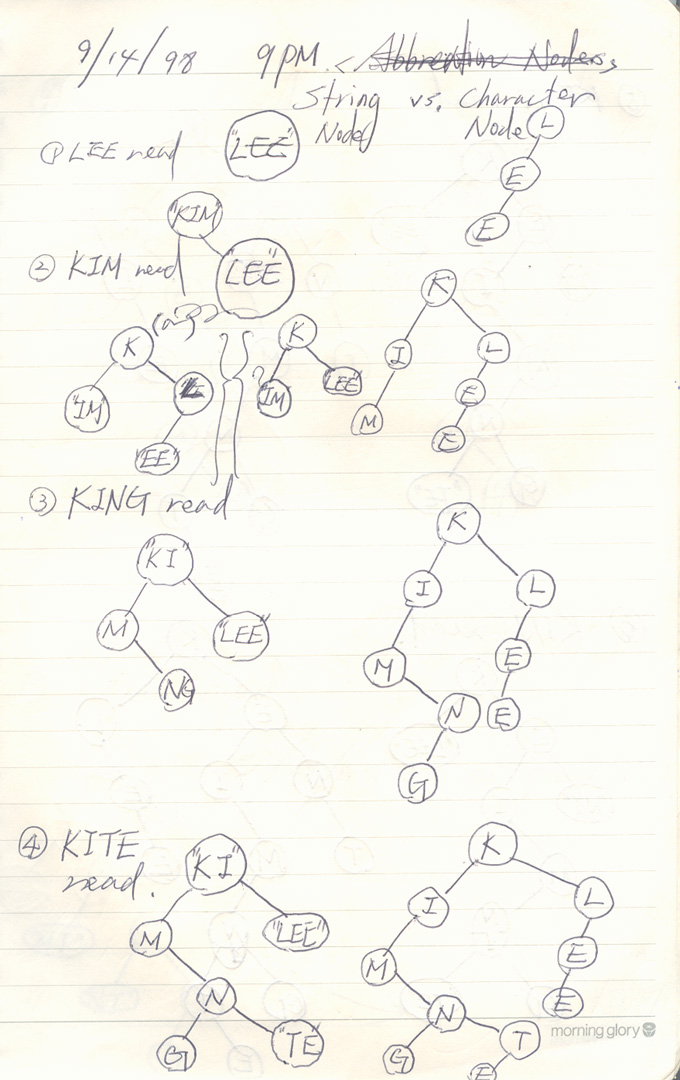 9/14/98 9PM. < Abbreviation Nodes,
String vs. Character
Node Node
① LEE read "LEE" L
E
E
"KIM"
② KIM read "LEE" K
K K I L
"IM" "IM" ? LEE E
"EE" M E
③ KING read
"KI" K
I L
M "LEE" E
M
NG N E
G
④ KITE "KI" K
read. I L
M "LEE" E
M
N N E
G "TE" G T
E
morning glory